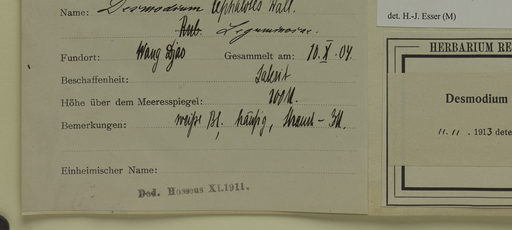 Name: Desmodium cephalotes Wall.
Leguminosae.
Fundort: Wang Djao Gesammelt am: 10.X.04
Beschaffenheit: Laterit
Höhe über dem Meeresspiegel: 200 M.
Bemerkungen: weiße Bl., häufig, Strauch
Einheimischer Name:
Ded. Hosseus XI.1911.
det. H.-J. Esser (M)
HERBARIUM RE
Desmodium
11.11.1913 dete